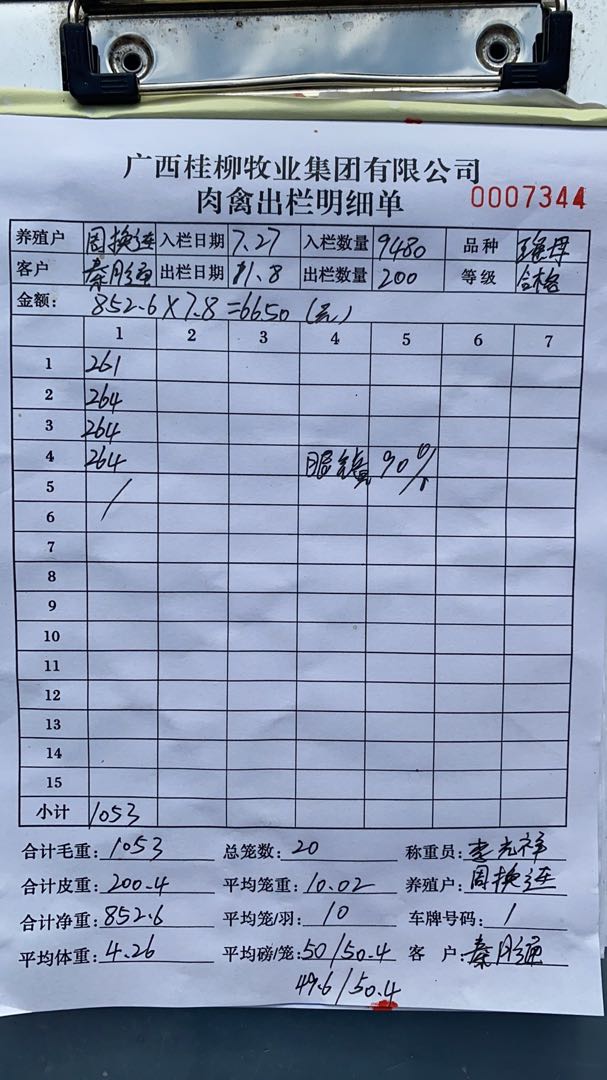 广西桂柳牧业集团有限公司
肉禽出栏明细单 0007344
养殖户 周换连 入栏日期 7.27 入栏数量 9480 品种
客户 秦 入栏日期 11.8 出栏数量 200 等级 合格
金额: 852.6×7.8=6650(元)
1 2 3 4 5 6 7
1 261
2 264
3 264
4 264 90%
5 /
6
7
8
9
10
11
12
13
14
15
小计 1053
合计毛重: 1053 总笼数: 20 称重员: 李光祥
合计皮重: 200.4 平均笼重: 10.02 养殖户: 周换连
合计净重: 852.6 平均笼/羽: 10 车牌号码: 1
平均体重: 4.26 平均磅/笼: 50/50.4 客 户: 秦
49.6/50.4